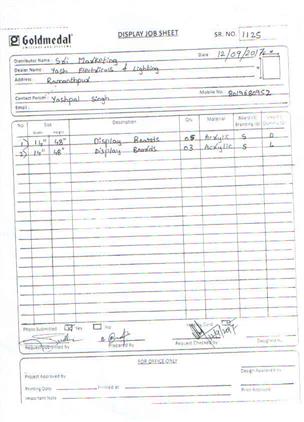 Goldmedal DISPLAY JOB SHEET SR. NO. 1125
Date 12/09/2017
Distributor Name Sri Marketing
Dealer Name Yash Electricals & Lighting
Address Ramanthpur
Contact Person Yashpal Singh Mobile No.
No Size Description Qty. Material
Width Height
1) 14" 48" Display Boards 05 Acrylic S D
2) 14" 48" Display Boards 03 Acrylic S L
Photo Submitted Yes No
Request Submitted By Prepared By Request Checked by
FOR OFFICE ONLY
Project Approved by Design Approved by
Printing Date Printed at Print Approved
Important Note